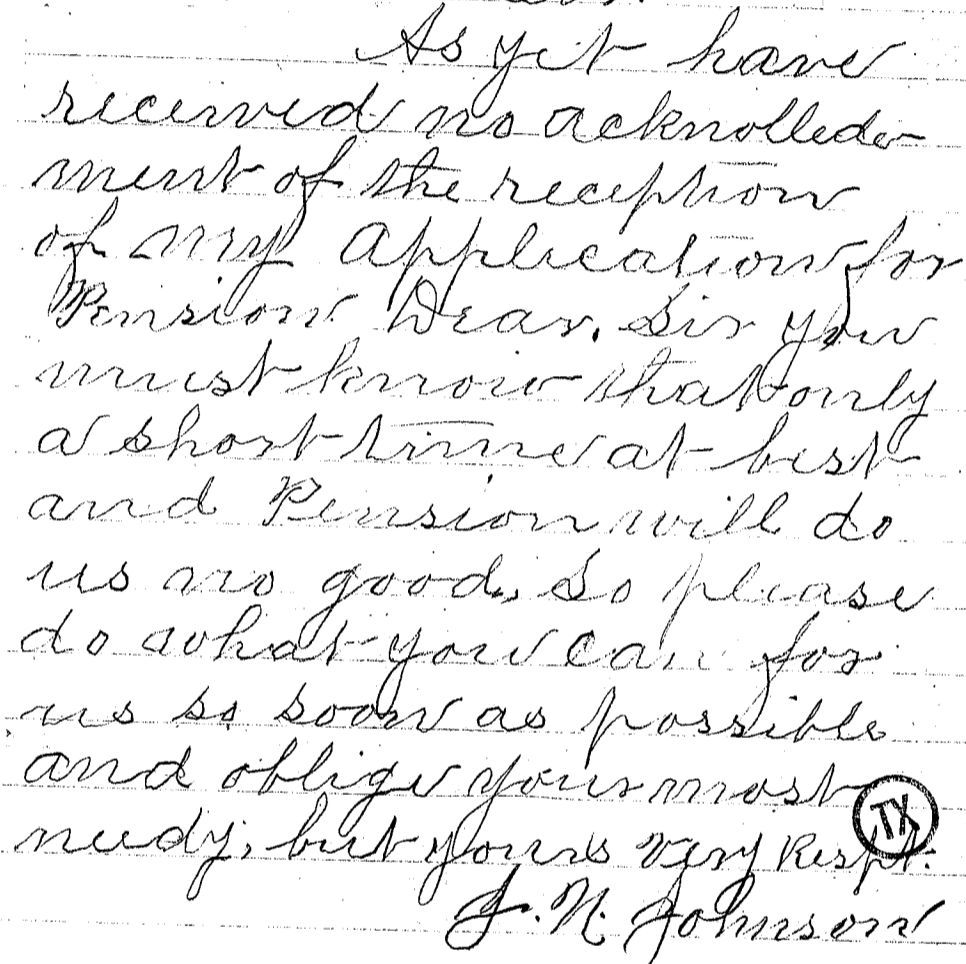 As yet have
received no acknollede-
ment of the reception
of my application for
Pension. Dear. Sir you
must know that only
a short time at best
and Pension will do
us no good. So please
do what you can for
us so soon as possible
and oblige your most
needy, but yours very Respt.
TX
J. N. Johnson